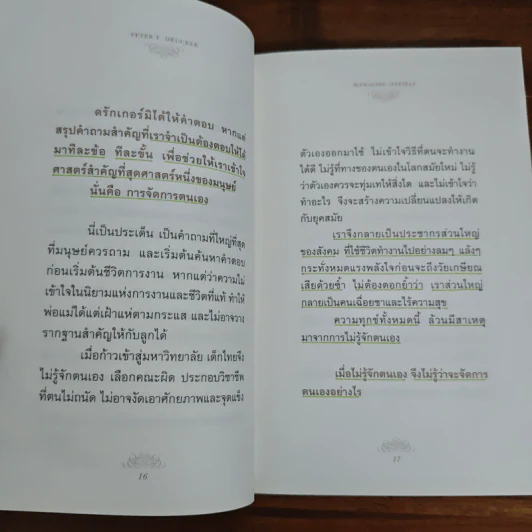 PETER F. DRUCKER
ดรักเกอร์มิได้ให้คำตอบ หากแต่
สรุปคำถามสำคัญที่เราจำเป็นต้องตอบให้ได้
มาทีละข้อ ทีละขั้น เพื่อช่วยให้เราเข้าใจ
ศาสตร์สำคัญที่สุดศาสตร์หนึ่งของมนุษย์
นั่นคือ การจัดการตนเอง
นี่เป็นประเด็น เป็นคำถามที่ใหญ่ที่สุด
ที่มนุษย์ควรถาม และเริ่มต้นค้นหาคำตอบ
ก่อนเริ่มต้นชีวิตการงาน หากแต่ว่าความไม่
เข้าใจในนิยามแห่งการงานและชีวิตที่แท้ ทำให้
พ่อแม่ได้แต่เฝ้าแห่ตามกระแส และไม่อาจวาง
รากฐานสำคัญให้กับลูกได้
เมื่อก้าวเข้าสู่มหาวิทยาลัย เด็กไทยจึง
ไม่รู้จักตนเอง เลือกคณะผิด ประกอบวิชาชีพ
ที่ตนไม่ถนัด ไม่อาจงัดเอาศักยภาพและจุดแข็ง
16
MANAGING ONESELF
ตัวเองออกมาใช้ ไม่เข้าใจวิธีที่ตนจะทำงาน
ได้ดี ไม่รู้ที่ทางของตนเองในโลกสมัยใหม่ ไม่รู้
ว่าตัวเองควรจะทุ่มเทให้สิ่งใด และไม่เข้าใจว่า
ทำอะไร จึงจะสร้างความเปลี่ยนแปลงให้เกิด
กับยุคสมัย
เราจึงกลายเป็นประชากรส่วนใหญ่
ของสังคม ที่ใช้ชีวิตทำงานไปอย่างลมๆ แล้งๆ
กระทั่งหมดแรงพลังใจก่อนจะถึงวัยเกษียณ
เสียด้วยซ้ำ ไม่ต้องตอกย้ำว่า เราส่วนใหญ่
กลายเป็นคนเฉื่อยชาและไร้ความสุข
ความทุกข์ทั้งหมดนี้ ล้วนมีสาเหตุ
มาจากการไม่รู้จักตนเอง
เมื่อไม่รู้จักตนเอง จึงไม่รู้ว่าจะจัดการ
ตนเองอย่างไร
17